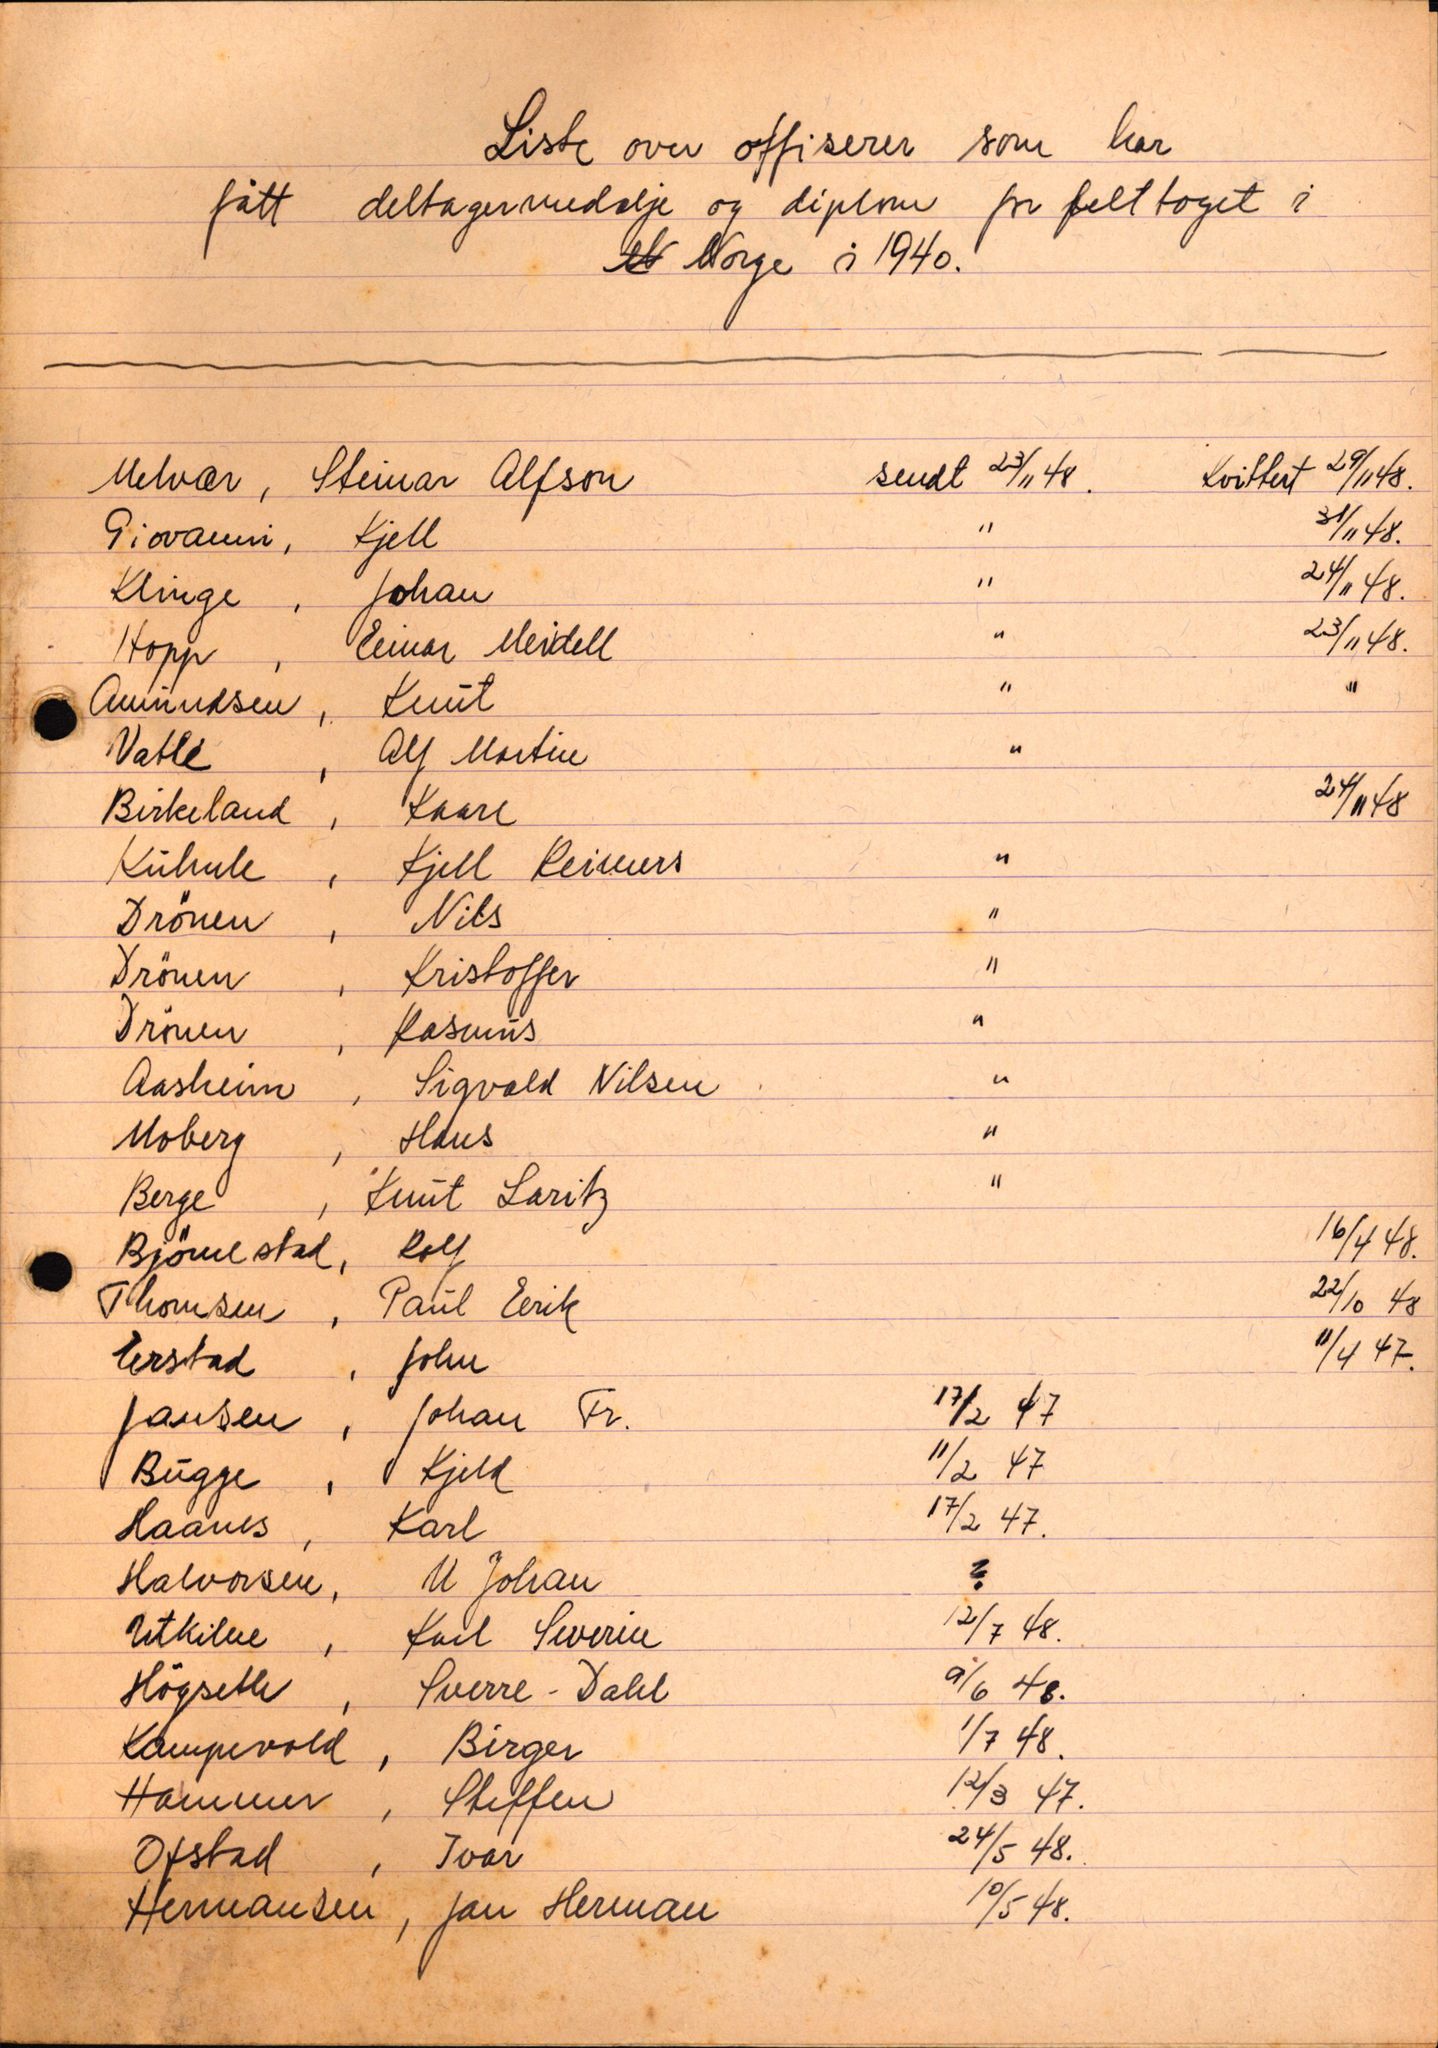 Liste over offiserer som har
fått deltagermedalje og diplom for felttoget i
Norge i 1940.
Melvær, Steinar Alfson sendt 23/11 48. Kvittert 29/11 48.
Giovanni, Kjell " 31/11 48.
Klinge, Johan " 24/11 48.
Hopp, Einar Meidell " 23/11 48.
Amundsen, Knut " "
Vatle, Alf Martin "
Birkeland, Kaare 24/11 48
Kuhnle, Kjell Reimers "
Drönen, Nils "
Drönen, Kristoffer "
Drönen, Rasmus "
Aasheim, Sigvald Nilsen "
Moberg, Hans "
Berge, Knut Laritz "
Björnestad, Rolf 16/4 48.
Thomsen, Paul Eerik 22/10 48
Eerstad, John 11/4 47.
Jansen, Johan Fr. 17/2 47
Bugge, Kjeld 11/2 47
Haanes, Karl 17/2 47.
Halvorsen, M Johan ?
Utkilne, Karl Severin 12/7 48.
Högseth, Sverre - Dahl 9/6 48.
Kampevold, Birger 1/7 48.
Hammer, Steffen 12/3 47.
Ofstad, Ivar 24/5 48.
Hermansen, Jan Herman 10/5 48.